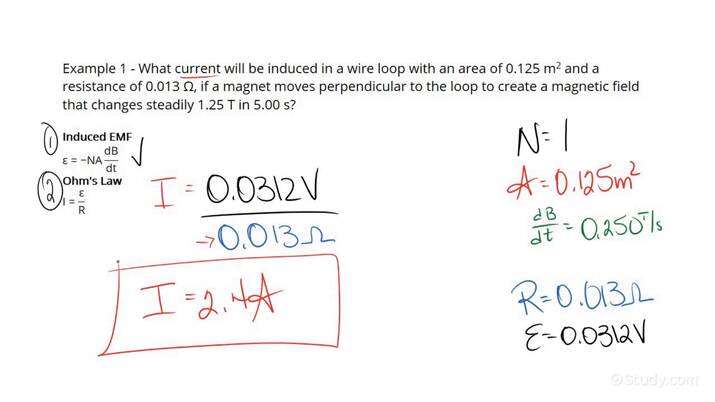 Example 1 - What current will be induced in a wire loop with an area of 0.125 m² and a
resistance of 0.013 Ω, if a magnet moves perpendicular to the loop to create a magnetic field
that changes steadily 1.25 T in 5.00 s?
① Induced EMF
ε = −NA dB/dt ✓
② Ohm's Law
I = ε/R
I = 0.0312V
→0.013Ω
I = 2.4A
N=1
A=0.125m²
dB/dt = 0.250 T/s
R=0.013Ω
ε=0.0312V
©Study.com